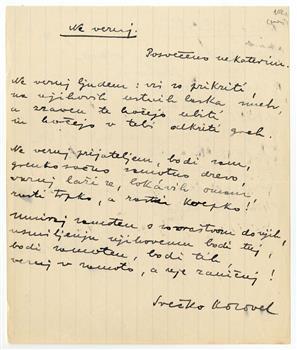 Ne veruj.
Posvečeno nekaterim.
Ne veruj ljudem: vsi so prikriti,
na njihovih ustnih laska smeh
a zraven te hočejo ubiti
in hočejo v tebi odkriti greh.
Ne veruj prijateljem, bodi sam,
grenko sočno samotno drevo,
varuj
rasti trpko, a rasti krepko!
Umiraj samoten, s sovraštvom do njih,
usmiljenju njihovemu bodi tuj,
bodi samoten, bodi tih
veruj v samoto, a nje zaničuj!
Srečko Kosovel